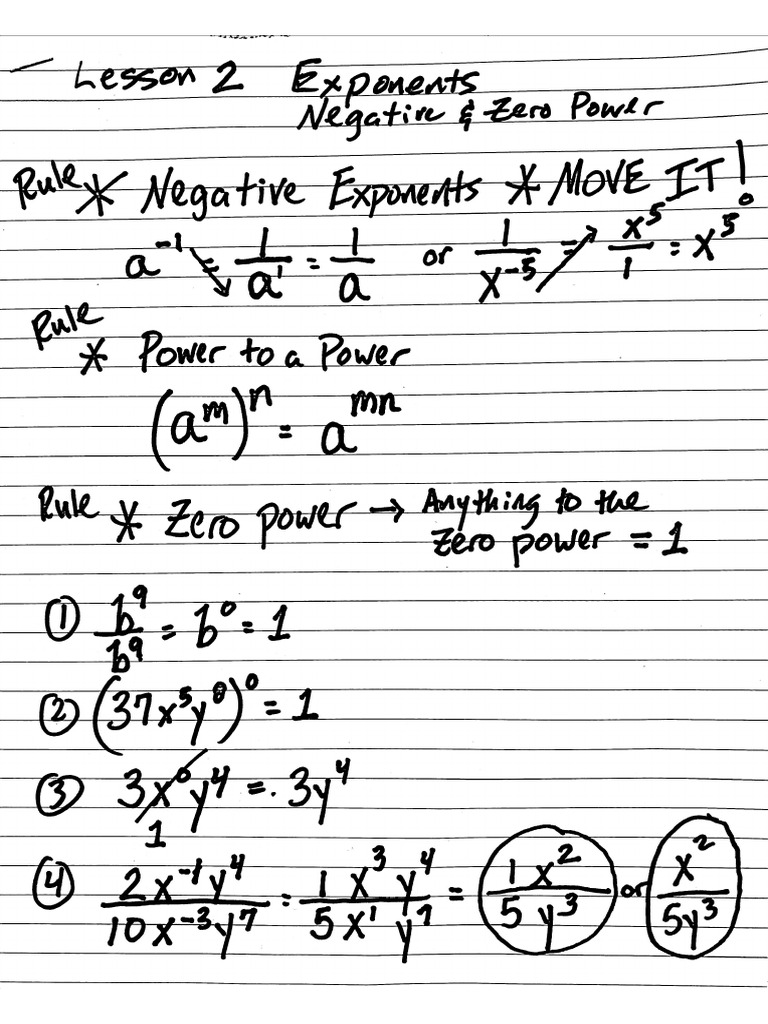 Lesson 2 Exponents
Negative & Zero Power
Rule * Negative Exponents * MOVE IT!
a⁻¹ = 1/a¹ = 1/a or 1/x⁻⁵ = x⁵/1 = x⁵
Rule
* Power to a Power
(aᵐ)ⁿ = aᵐⁿ
Rule * Zero power → Anything to the
Zero power = 1
① b⁹/b⁹ = b⁰ = 1
② (37x⁵y⁸)⁰ = 1
③ 3x⁰y⁴ = 3y⁴
1
④ 2x⁻¹y⁴/10x⁻³y⁷ = 1x³y⁴/5x¹y⁷ = 1x²/5y³ or x²/5y³